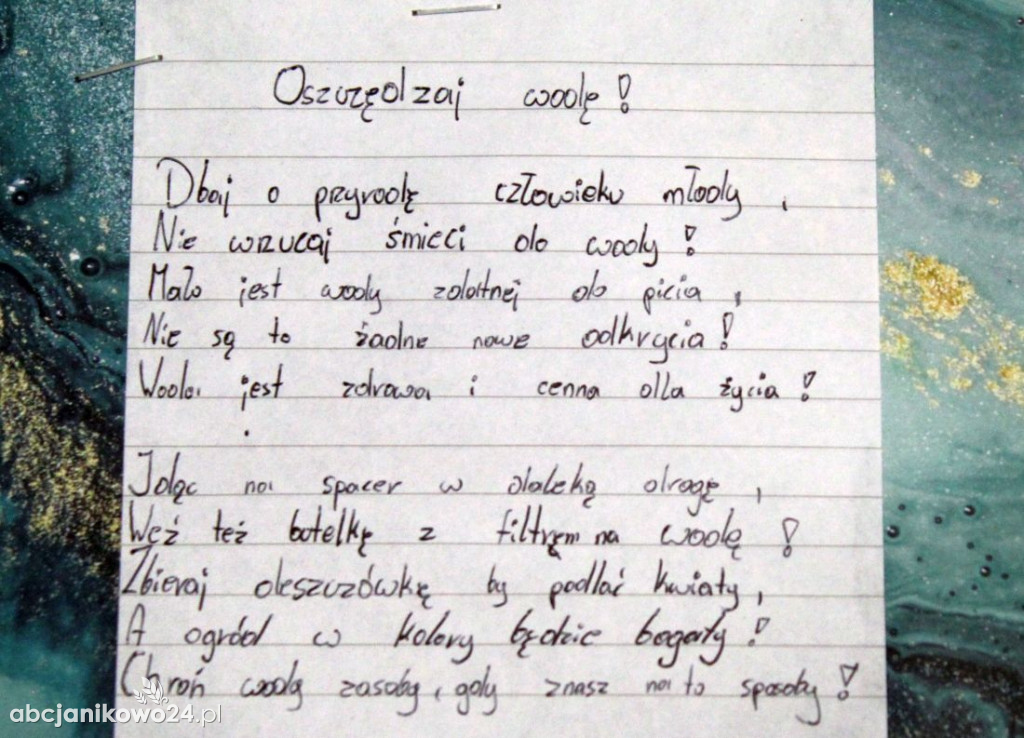 Oszczędzaj wodę!
Dbaj o przyrodę człowieku młody,
Nie wrzucaj śmieci do wody!
Mało jest wody zdatnej do picia,
Nie są to żadne nowe odkrycia!
Woda jest zdrowa i cenna dla życia!
Idąc na spacer w daleką drogę,
Weź też butelkę z filtrem na wodę!
Zbieraj deszczówkę by podlać kwiaty,
A ogród w kolory będzie bogaty!
Chroń wody zasoby, gdy znasz na to sposoby!
abcjanikowo24.pl